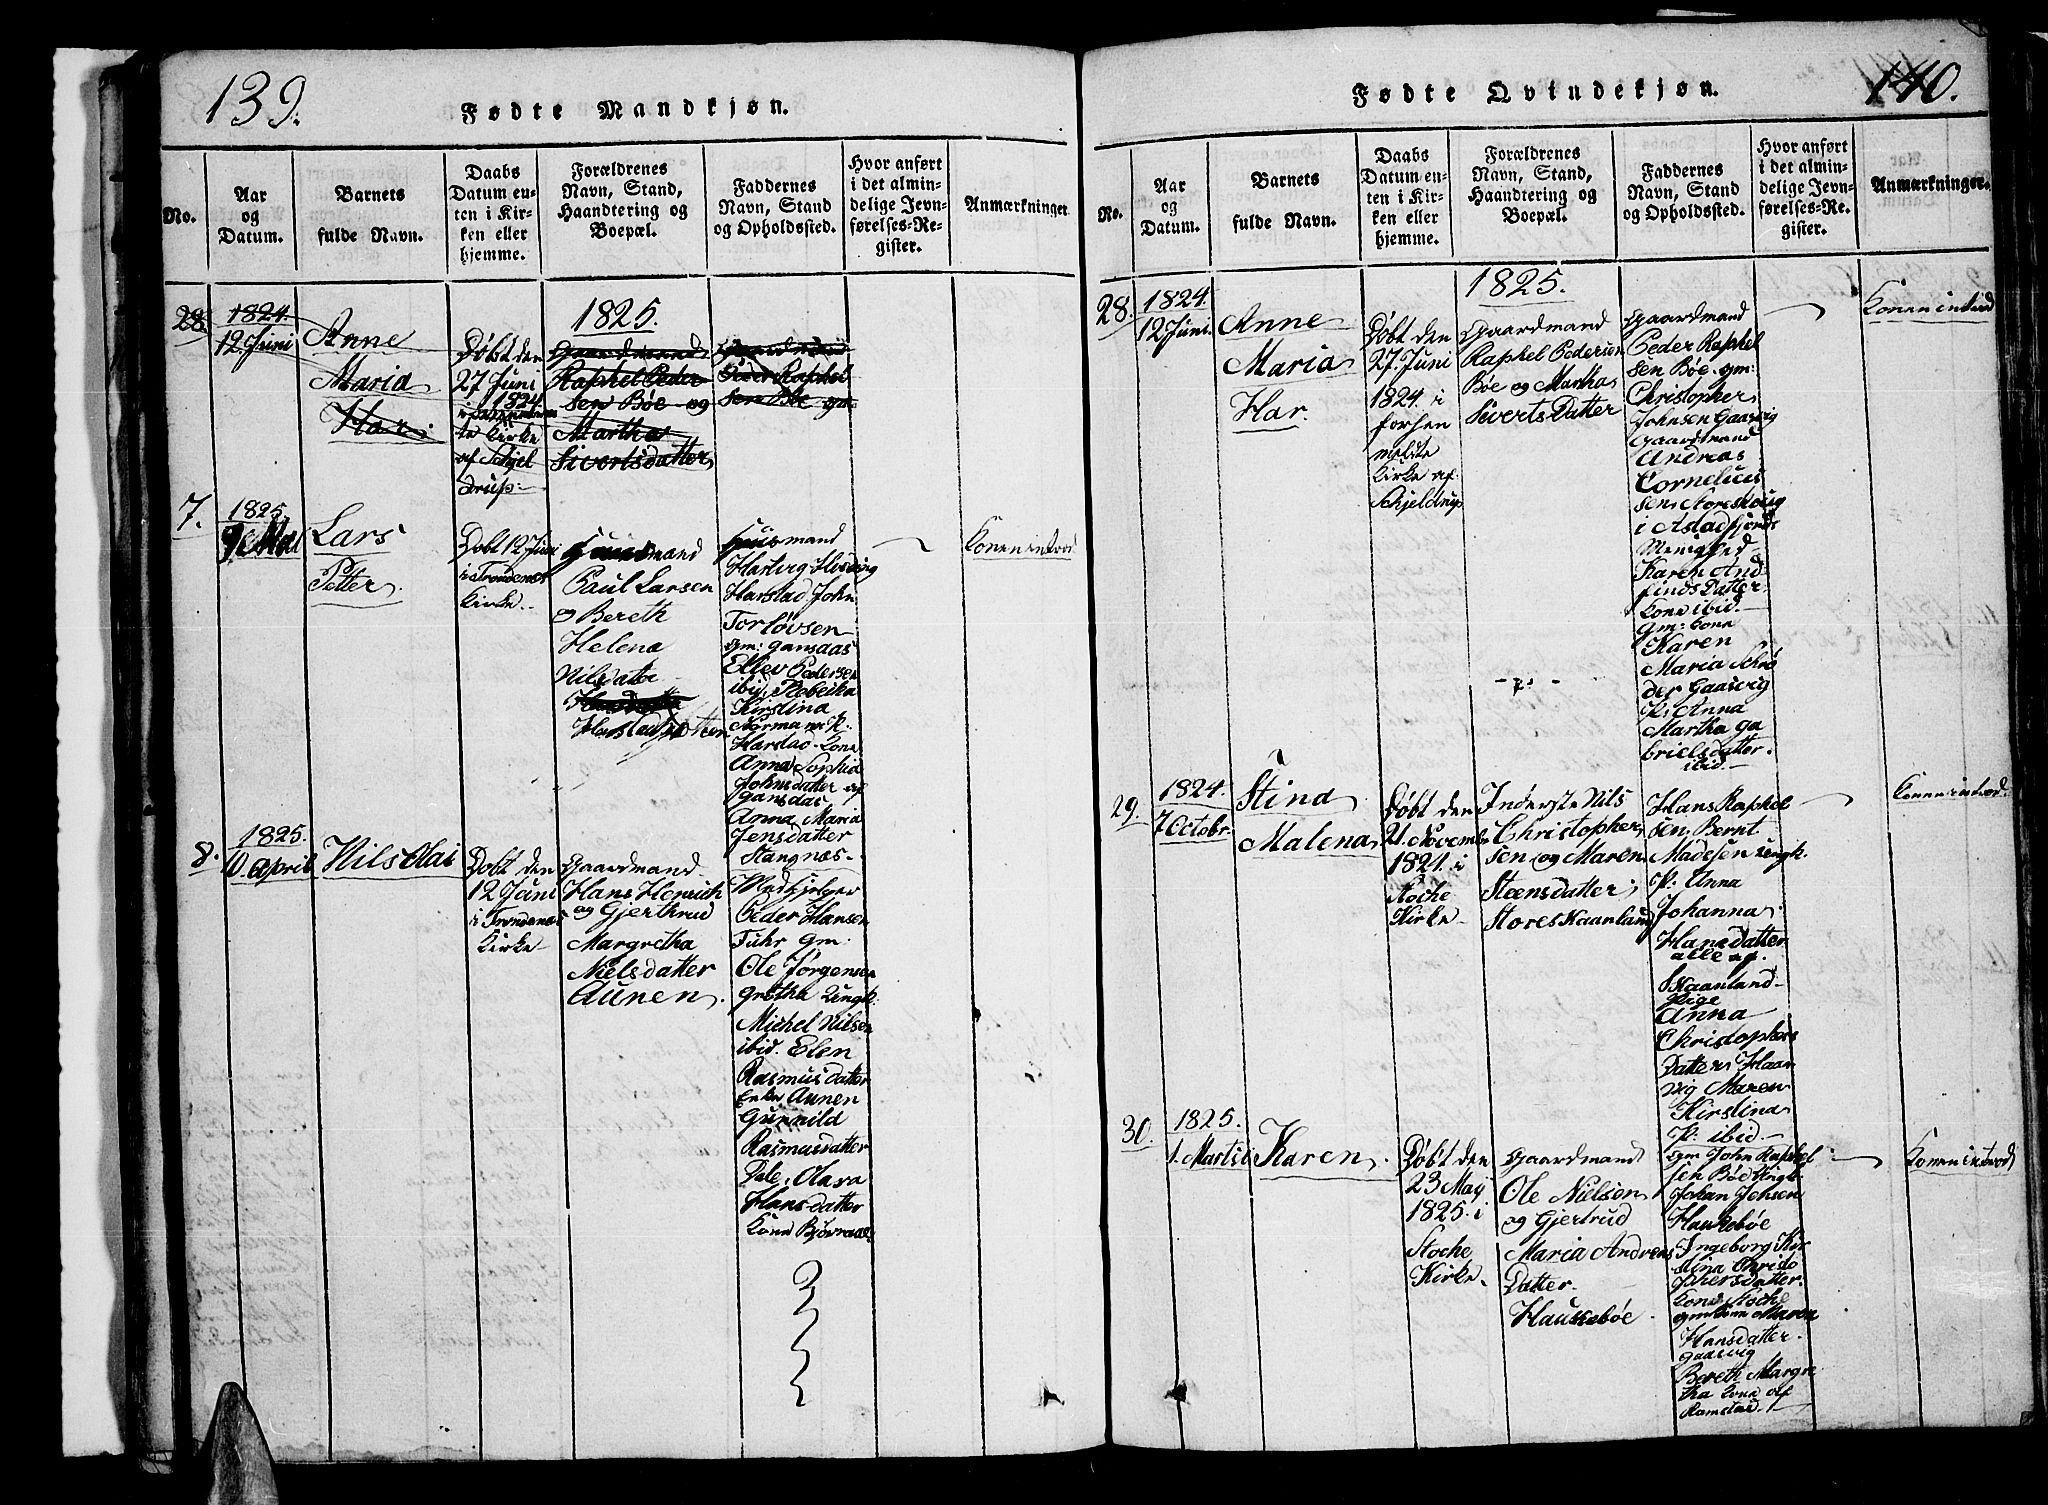 139.
Fødte Mandkjøn.
No.
Aar
og
Datum.
Barnets
fulde Navn.
Daabs
Datum en-
ten i Kir-
ken eller
hjemme.
Forældrenes
Navn, Stand,
Haandtering og
Boepæl.
Faddernes
Navn, Stand
og Opholdssted.
Hvor anført
i det almin-
delige Jevn-
førelses-Re-
gister.
Anmærkninger
1825.
28.
1824.
12 Juni
Anne
Maria
Har
Døbt den
27 Juni
1824
te Kirke
af Schjel
drup
Gaardmand
Raphel Peder
sen Bøe og
Martha
Sivertsdatter
Gaardmand
Peder Raphel
sen Bøe gm
7.
1825.
9 Mai
Lars
Petter
Døbt 12 Juni
i Trondenæs
Kirke
Huusmand
Paul Larsen
og Bereth
Helena
Nilsdatter
Harstad
Huusmand
Hartvig Hveding
Harstad John
Torløvsen
gm: gansdas
Ellev Pedersen
ibid. Rebeika
Kirstina
Normann P:
Harstad Kone
Anna Sophia
Johnsdatter af
gansdas
Anna Maria
Jensdatter
Stangnæs
Konen introd
8.
1825.
10. April
Nils Olai
Døbt den
12 Juni
i Trondenæs
Kirke
Gaardmand
Hans Henrich
og Gjertrud
Margretha
Nielsdatter
Aunen
Medhjelper
Peder Hansen
Fuhr gm:
Ole Jørgensen
Grøtha Ungk:
Michel Nilsen
ibid. Elen
Rasmusdatter
Enke Aunen
Gunnild
Rasmusdatter
Dale, Olava
Hansdatter
Kone
140.
Fødte Qvindekjøn.
No.
Aar
og
Datum.
Barnets
fulde Navn.
Daabs
Datum en-
ten i Kir-
ken eller
hjemme.
Forældrenes
Navn, Stand,
Haandtering og
Boepæl.
Faddernes
Navn, Stand
og Opholdssted.
Hvor anført
i det almin-
delige Jevn-
førelses-Re-
gister.
Anmærkninger.
1825.
28.
1824.
12 Juni.
Anne
Maria
Har
Døbt den
27. Juni
1824. i
forhen
meldte
Kirke af
Schjeldrup
Gaardmand
Raphel Pedersen
Bøe og Martha
Siverts Datter
Gaardmand
Peder Raphel
sen Bøe. gm:
Christopher
Johnsen Gaasvig
gaardmand
Andreas
Cornelius
sen
i Astafjords
Menighed
Karen And
finds Datter
Kone ibid.
gm: Kone
Karen
Maria Schrø
der Gaasvig
P: Anna
Martha Ga
brielsdatter
ibid.
Konen introd
29.
1824.
7 Octobr.
Stina
Malena
Døbt den
21. Novemb
1824. i
Stoche
Kirke
Inderste Nils
Christopher
sen og Maren
Steensdatter
Stores Kaanland
Hans Raphel
sen, Bernt
Madesen Ungk.
P: Anna
Johanna
Hansdatter
alle af
Skaanland
Pige
Anna
Christophers
Datter, Haar
vig Maren
Kirstina
P: ibid.
Konen introd.
30.
1825.
1. Martsi
Karen
Døbt den
23 Maj
1825. i
Stoche
Kirke
Gaardmand
Ole Nielsen
og Gjertrud
Maria Andreas
Datter
Haukebøe
gm John Raphel
sen Bøe Ungk
Johan Johsen
Haukebøe
Ingeborg Kir
stina Christo
phersdatter
Kone Stoche
gm Kone Maren
Hansdatter
Gaasvig
Bereth Margre
tha Kone af
Ramstad
Konen introd